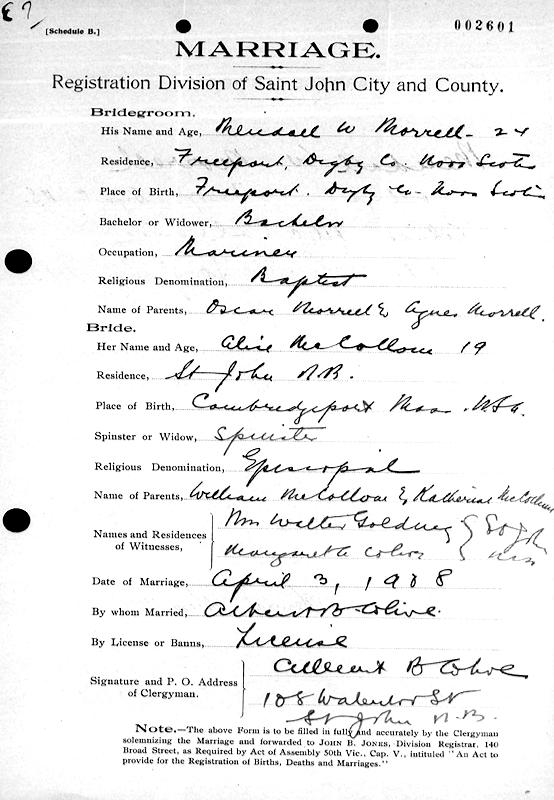 [Schedule B.]
002601
MARRIAGE.
Registration Division of Saint John City and County.
Bridegroom.
His Name and Age, Mendall W Morrell - 24
Residence, Freeport, Digby Co. Nova Scotia
Place of Birth, Freeport. Digby Co- Nova Scotia
Bachelor or Widower, Bachelor
Occupation, Mariner
Religious Denomination, Baptist
Name of Parents, Oscar Morrell & Agnes Morrell.
Bride.
Her Name and Age, Alice McCollom 19
Residence, St John N.B.
Place of Birth, Cambridgeport Mass. USA.
Spinster or Widow, Spinster
Religious Denomination, Episcopal
Name of Parents, William McCollom & Katherine McCollom
Names and Residences of Witnesses,
Walter
Margaret A Cohoe St John
Date of Marriage, April 3, 1908
By whom Married, B Cohoe.
By License or Banns, License
Signature and P. O. Address of Clergyman.
B Cohoe
108 St
St John N.B.
Note.—The above Form is to be filled in fully and accurately by the Clergyman
solemnizing the Marriage and forwarded to JOHN B. JONES, Division Registrar, 140
Broad Street, as Required by Act of Assembly 50th Vic., Cap. V., intituled "An Act to
provide for the Registration of Births, Deaths and Marriages."